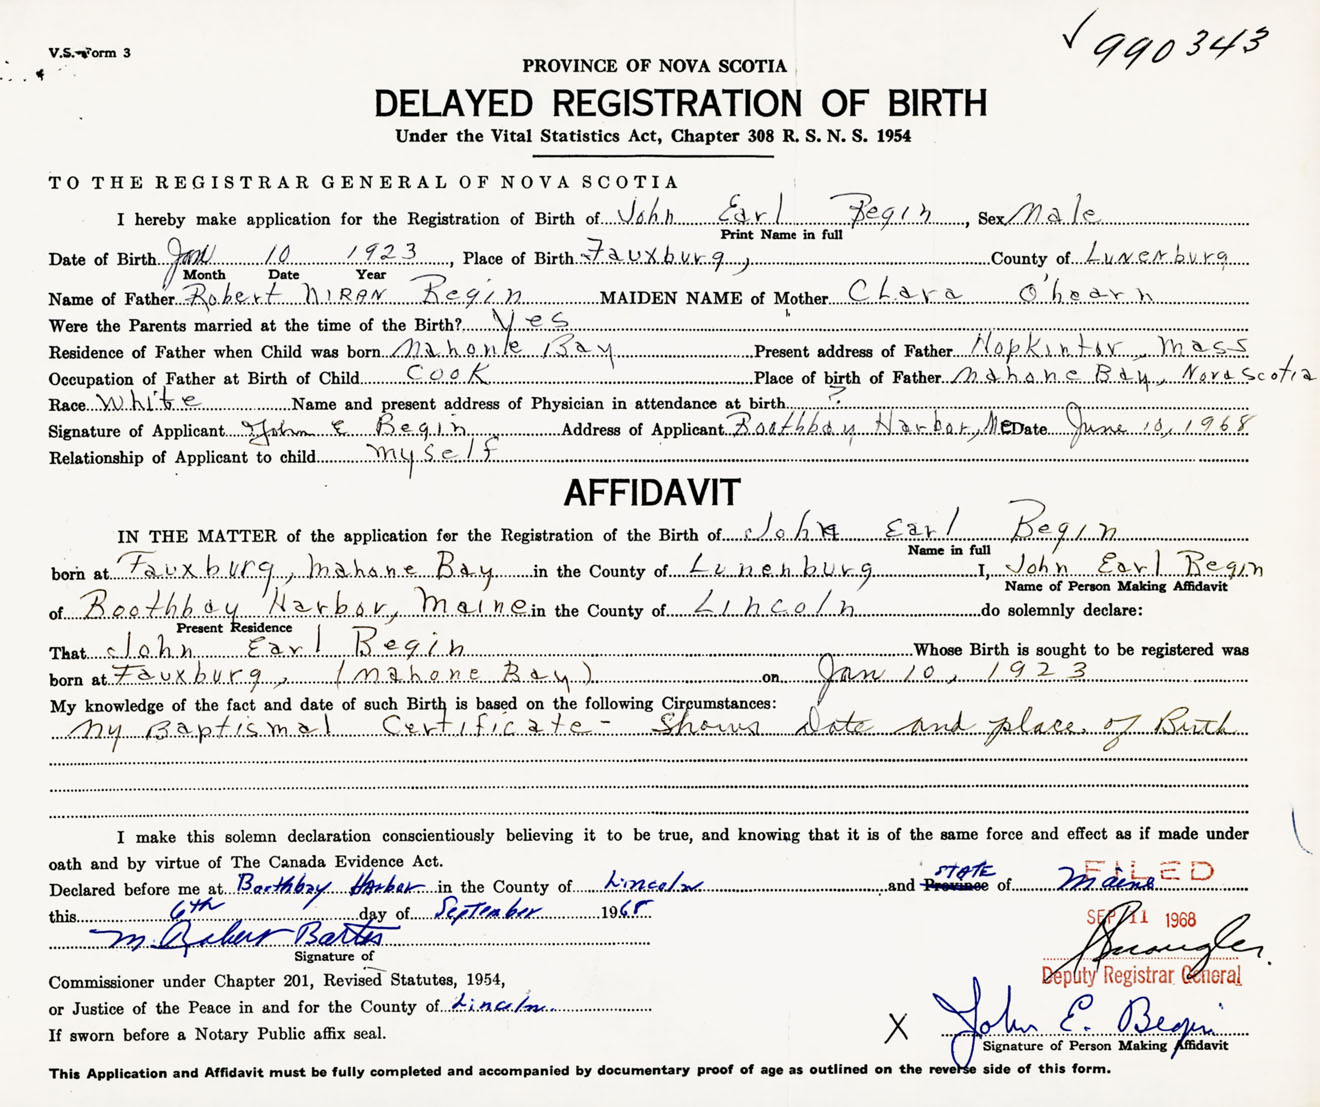 V.S. Form 3
✓ 990343
PROVINCE OF NOVA SCOTIA
DELAYED REGISTRATION OF BIRTH
Under the Vital Statistics Act, Chapter 308 R. S. N. S. 1954
TO THE REGISTRAR GENERAL OF NOVA SCOTIA
I hereby make application for the Registration of Birth of John Earl Begin, Sex Male
Print Name in full
Date of Birth Jan 10 1923, Place of Birth Fauxburg, County of Lunenburg
Month Date Year
Name of Father Robert NIRAN Begin MAIDEN NAME of Mother Clara O'hearn
Were the Parents married at the time of the Birth? Yes
Residence of Father when Child was born Mahone Bay Present address of Father Hopkinton, Mass
Occupation of Father at Birth of Child COOK Place of birth of Father Mahone Bay, Nova Scotia
Race White Name and present address of Physician in attendance at birth ?
Signature of Applicant John E Begin Address of Applicant Boothbay Harbor, Me Date June 10, 1968
Relationship of Applicant to child myself
AFFIDAVIT
IN THE MATTER of the application for the Registration of the Birth of John Earl Begin
Name in full
born at Fauxburg, Mahone Bay in the County of Lunenburg I, John Earl Begin
Name of Person Making Affidavit
of Boothbay Harbor, Maine in the County of Lincoln do solemnly declare:
Present Residence
That John Earl Begin Whose Birth is sought to be registered was
born at Fauxburg, (Mahone Bay) on Jan 10, 1923
My knowledge of the fact and date of such Birth is based on the following Circumstances:
My Baptismal Certificate - Shows Date and place of Birth
I make this solemn declaration conscientiously believing it to be true, and knowing that it is of the same force and effect as if made under
oath and by virtue of The Canada Evidence Act.
Declared before me at Boothbay Harbor in the County of Lincoln and Province STATE of Maine
FILED
this 6th day of September 1968
SEP 11 1968
M. Robert
Signature of
Deputy Registrar General
Commissioner under Chapter 201, Revised Statutes, 1954,
or Justice of the Peace in and for the County of Lincoln
If sworn before a Notary Public affix seal.
X John E. Begin
Signature of Person Making Affidavit
This Application and Affidavit must be fully completed and accompanied by documentary proof of age as outlined on the reverse side of this form.